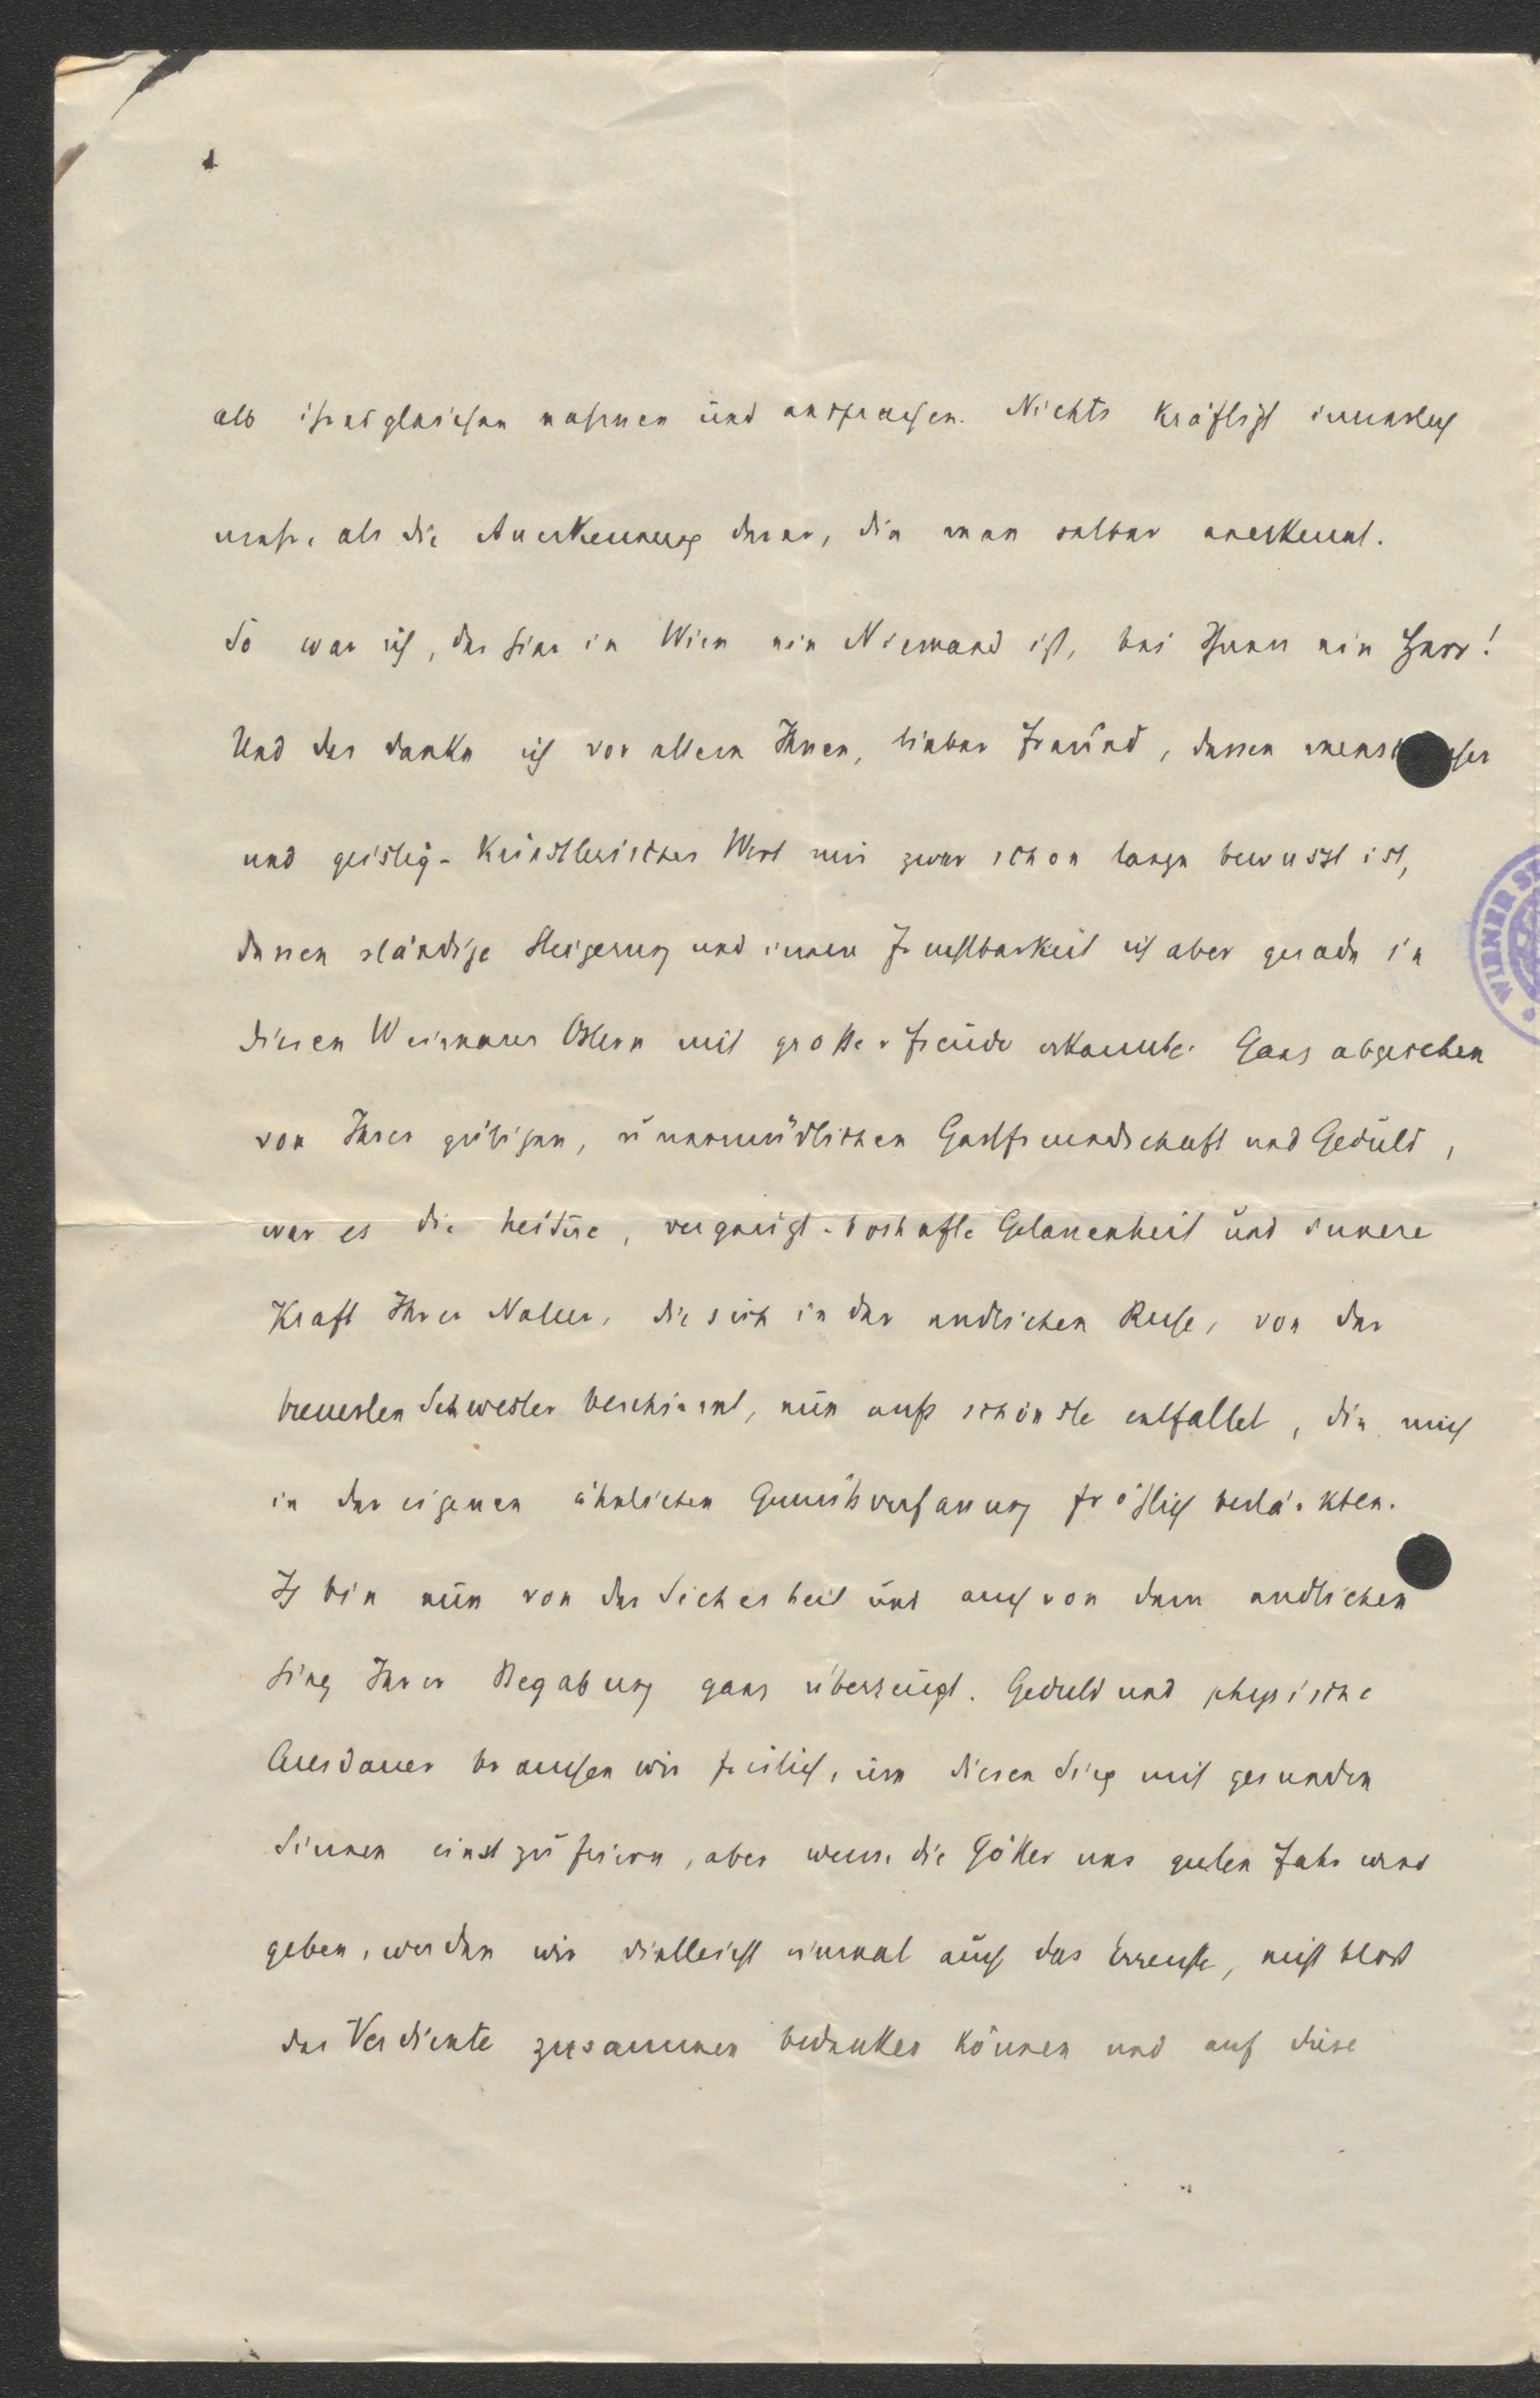 als ihresgleichen nahmen und ansprachen. Nichts kräftigt innerlich
mehr, als die Anerkennung derer, die man selber anerkennt.
So war ich, der hier in Wien ein Niemand ist, bei Ihnen ein Herr!
Und das danke ich vor allem Ihnen, lieber Freund, dessen
und geistig-künstlerischer Wert mir zwar schon lange bewusst ist,
dessen ständige Steigerung und innere Fruchtbarkeit ich aber gerade in
diesen Weimarer Ostern mit großer Freude erkannte. Ganz abgesehen
von Ihrer gütigen, unermüdlichen Gastfreundschaft und Geduld,
war es die heitere, vergnügt-boshafte Gelassenheit und innere
Kraft Ihrer Natur, die sich in der endlichen Ruhe, von der
treuesten Schwester beschirmt, nun aufs schönste entfaltet, die mich
in der eigenen ähnlichen Gemütsverfassung fröhlich bestärkten.
Ich bin nun von der Sicherheit und auch von dem endlichen
Sieg Ihrer Begabung ganz überzeugt. Geduld und physische
Ausdauer brauchen wir freilich, um diesen Sieg mit gesunden
Sinnen einst zu feiern, aber wenn die Götter uns guten Jahrwind
geben, werden wir vielleicht einmal auch das Erreichte, nicht bloß
das Verdiente zusammen können und auf diese
WIENER